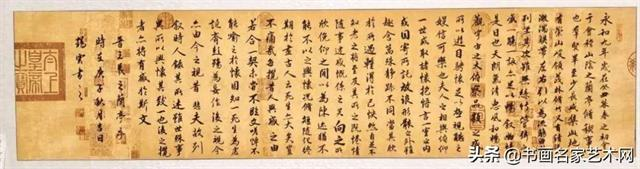 永和九年歲在癸丑暮春之初會
于會稽山陰之蘭亭脩禊事
也羣賢畢至少長咸集此地
有崇山峻領茂林脩竹又有清流
激湍映帶左右引以為流觴曲水
列坐其次雖無絲竹管弦之
盛一觴一詠亦足以暢敘幽情
是日也天朗氣清惠風和暢仰
觀宇宙之大俯察品類之盛
所以遊目騁懷足以極視聽之
娛信可樂也夫人之相與俯仰
一世或取諸懷抱悟言一室之內
或因寄所託放浪形骸之外雖
趣舍萬殊靜躁不同當其欣
於所遇暫得於己快然自足不
知老之將至及其所之既惓情
隨事遷感慨係之矣向之所
欣俛仰之間以為陳迹猶不
能不以之興懷況脩短隨化終
期於盡古人云死生亦大矣豈
不痛哉每攬昔人興感之由
若合一契未嘗不臨文嗟悼不
能喻之於懷固知一死生為虛
誕齊彭殤為妄作後之視今
亦由今之視昔悲夫故列
敘時人錄其所述雖世殊事
異所以興懷其致一也後之攬
者亦將有感於斯文
晉王羲之蘭亭序
時在庚子秋月吉日
書之
头条 @书画名家艺术网